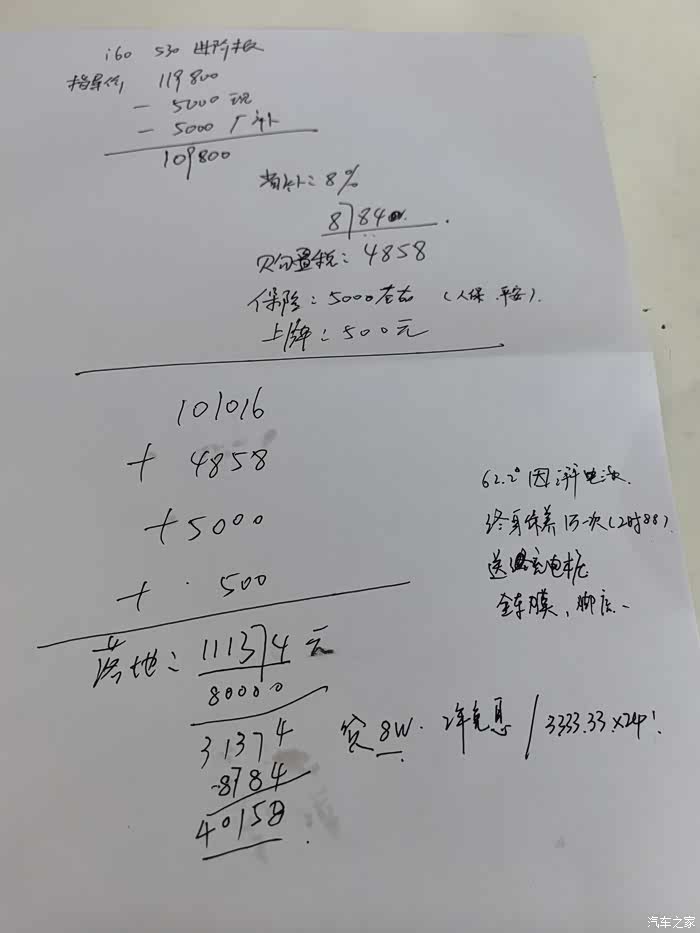 i60 530 进阶版
指导价 119800
- 5000 现
- 5000 厂补
109800
省补：8%
8784
购置税：4858
保险：5000左右 （人保.平安）.
上牌：500元
101016
+ 4858
+ 5000
+ 500
62.2° 因湃电池
终身保养 1万一次
送 充电桩
全车膜、脚底
落地：111374元
80000
31374
8784
40158
贷 8W. 2年免息 / 3333.33×24
汽车之家